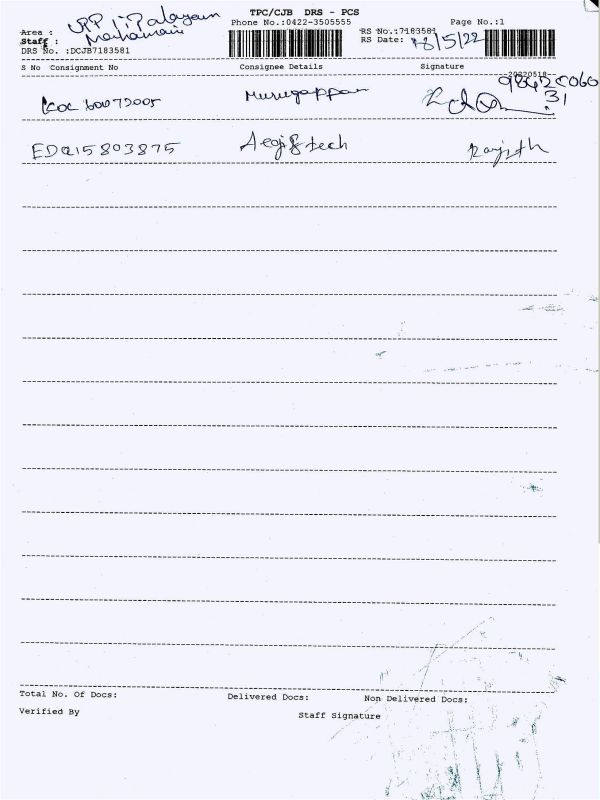 TPC/CJB DRS - PCS
Area : UPP i Palayam
Phone No.:0422-3505555
Page No.:1
Staff :
RS No.:7183581
DRS No. :DCJB7183581
RS Date: 18/5/22
S No Consignment No Consignee Details Signature
20220518
98420060
31
Murugappan
EDQ15803875 Ranjith
Total No. Of Docs: Delivered Docs: Non Delivered Docs:
Verified By Staff Signature